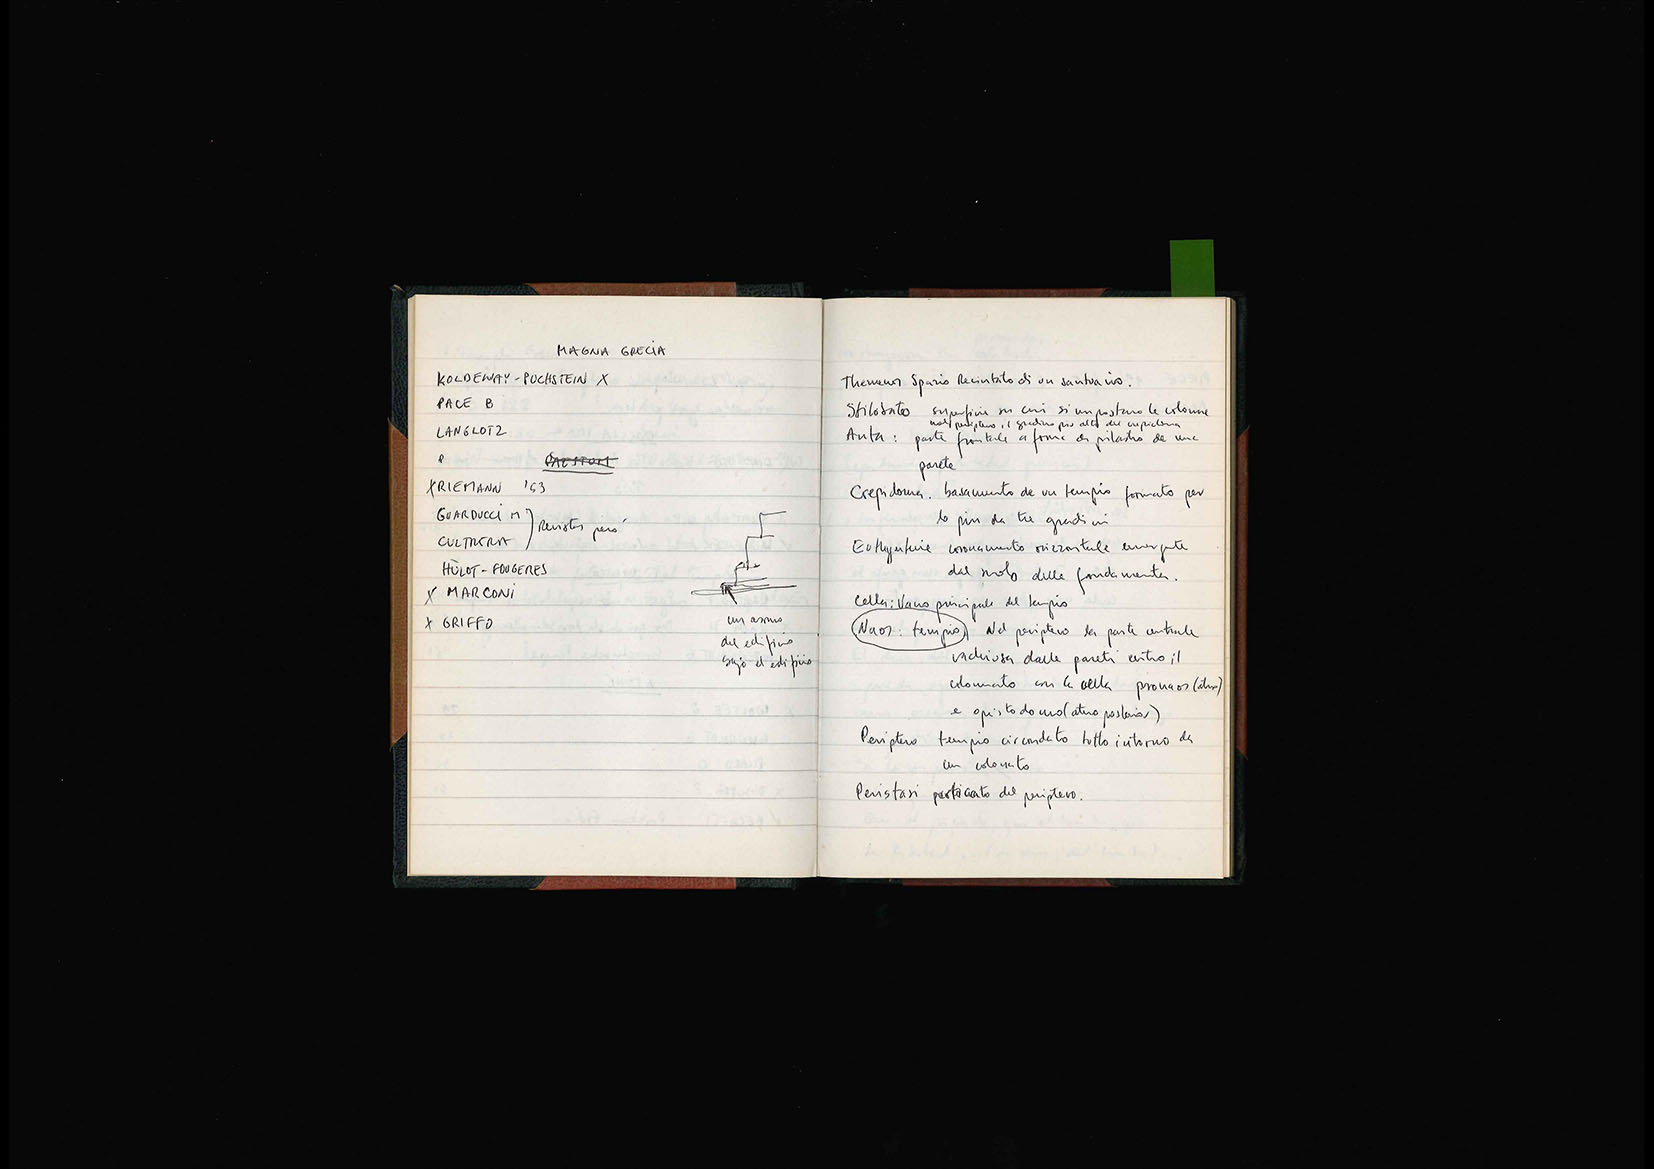 MAGNA GRECIA
KOLDEWAY-PUCHSTEIN X
PACE B
LANGLOTZ
P PAESTUM
X RIEMANN '53
GUARDUCCI M
CULTRERA
però
HÙLOT-FOUGERES
X MARCONI
X GRIFFO
un asmo
del edificio
bajo el edificio
Themenos Spazio Recintato di un santuario.
Stilobato superfice su cui si impostano le colonne
nel periptero, il gradino più alto del crepidoma
Anta: parte frontale a forma di pilastro de una
parete
Crepidoma. basamento de un tempio formato per
lo piu da tre gradini
Euthynterie coronamento orizzontale emergente
dal suolo delle fondamenta.
Cella: Vano principale del tempio
Naos: tempio Nel periptero la parte centrale
racchiusa dalle pareti entro il
colonnato con la cella pronaos (atrio)
e opistodomo (atrio posterior)
Periptero tempio circondato tutto intorno da
un colonnato
Peristasi porticato del periptero.